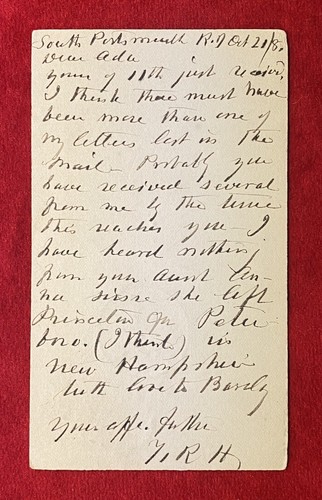 South Portsmouth R.I Oct 21/8
Dear Ada
yours of 11th just received
I think there must have
been more than one of
my letters lost in the
mail - Probably you
have received several
from me by the time
this reaches you - I
have heard nothing
from your Aunt An-
na since she left
Princeton for Peter
boro. (I think) in
New Hampshire
with love to
your aff. father
T. R. H.